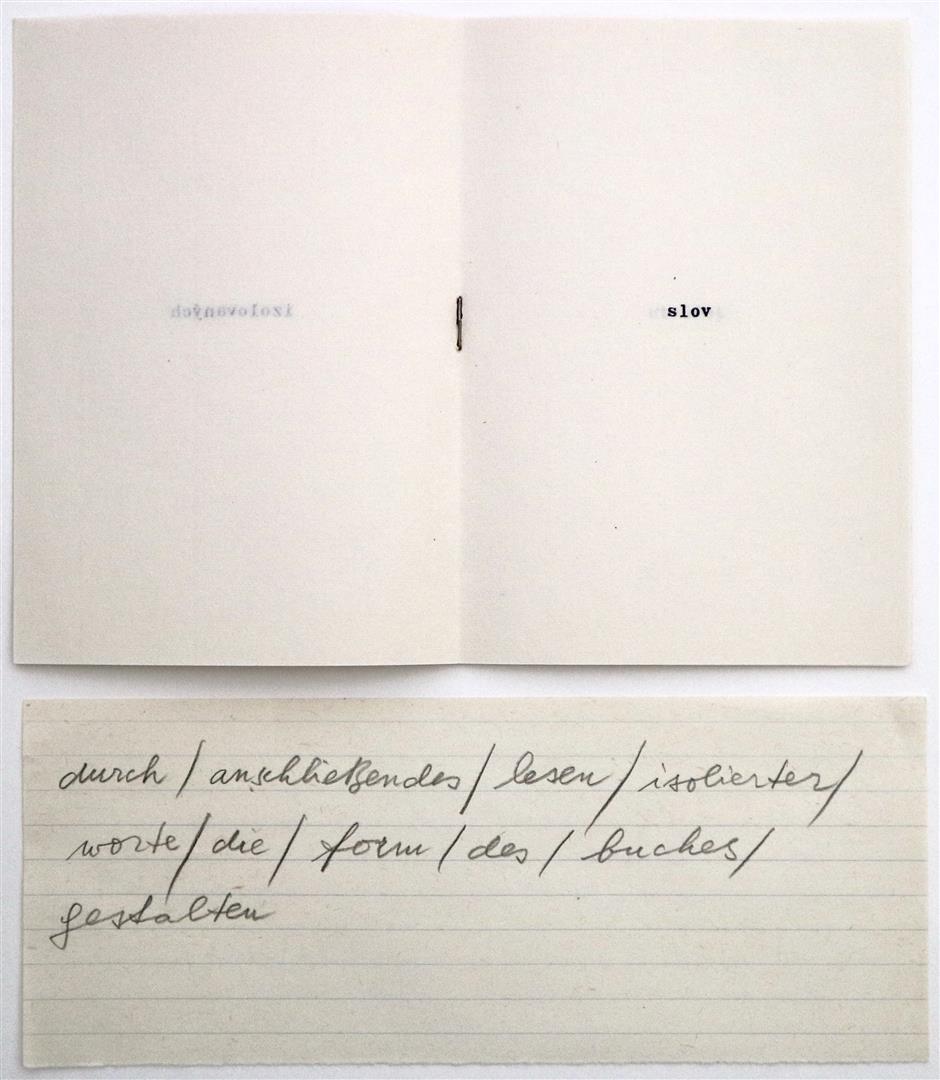 izolovaných
slov
durch / anschließendes / lesen / isolierter /
worte / die / form / des / buches /
gestalten